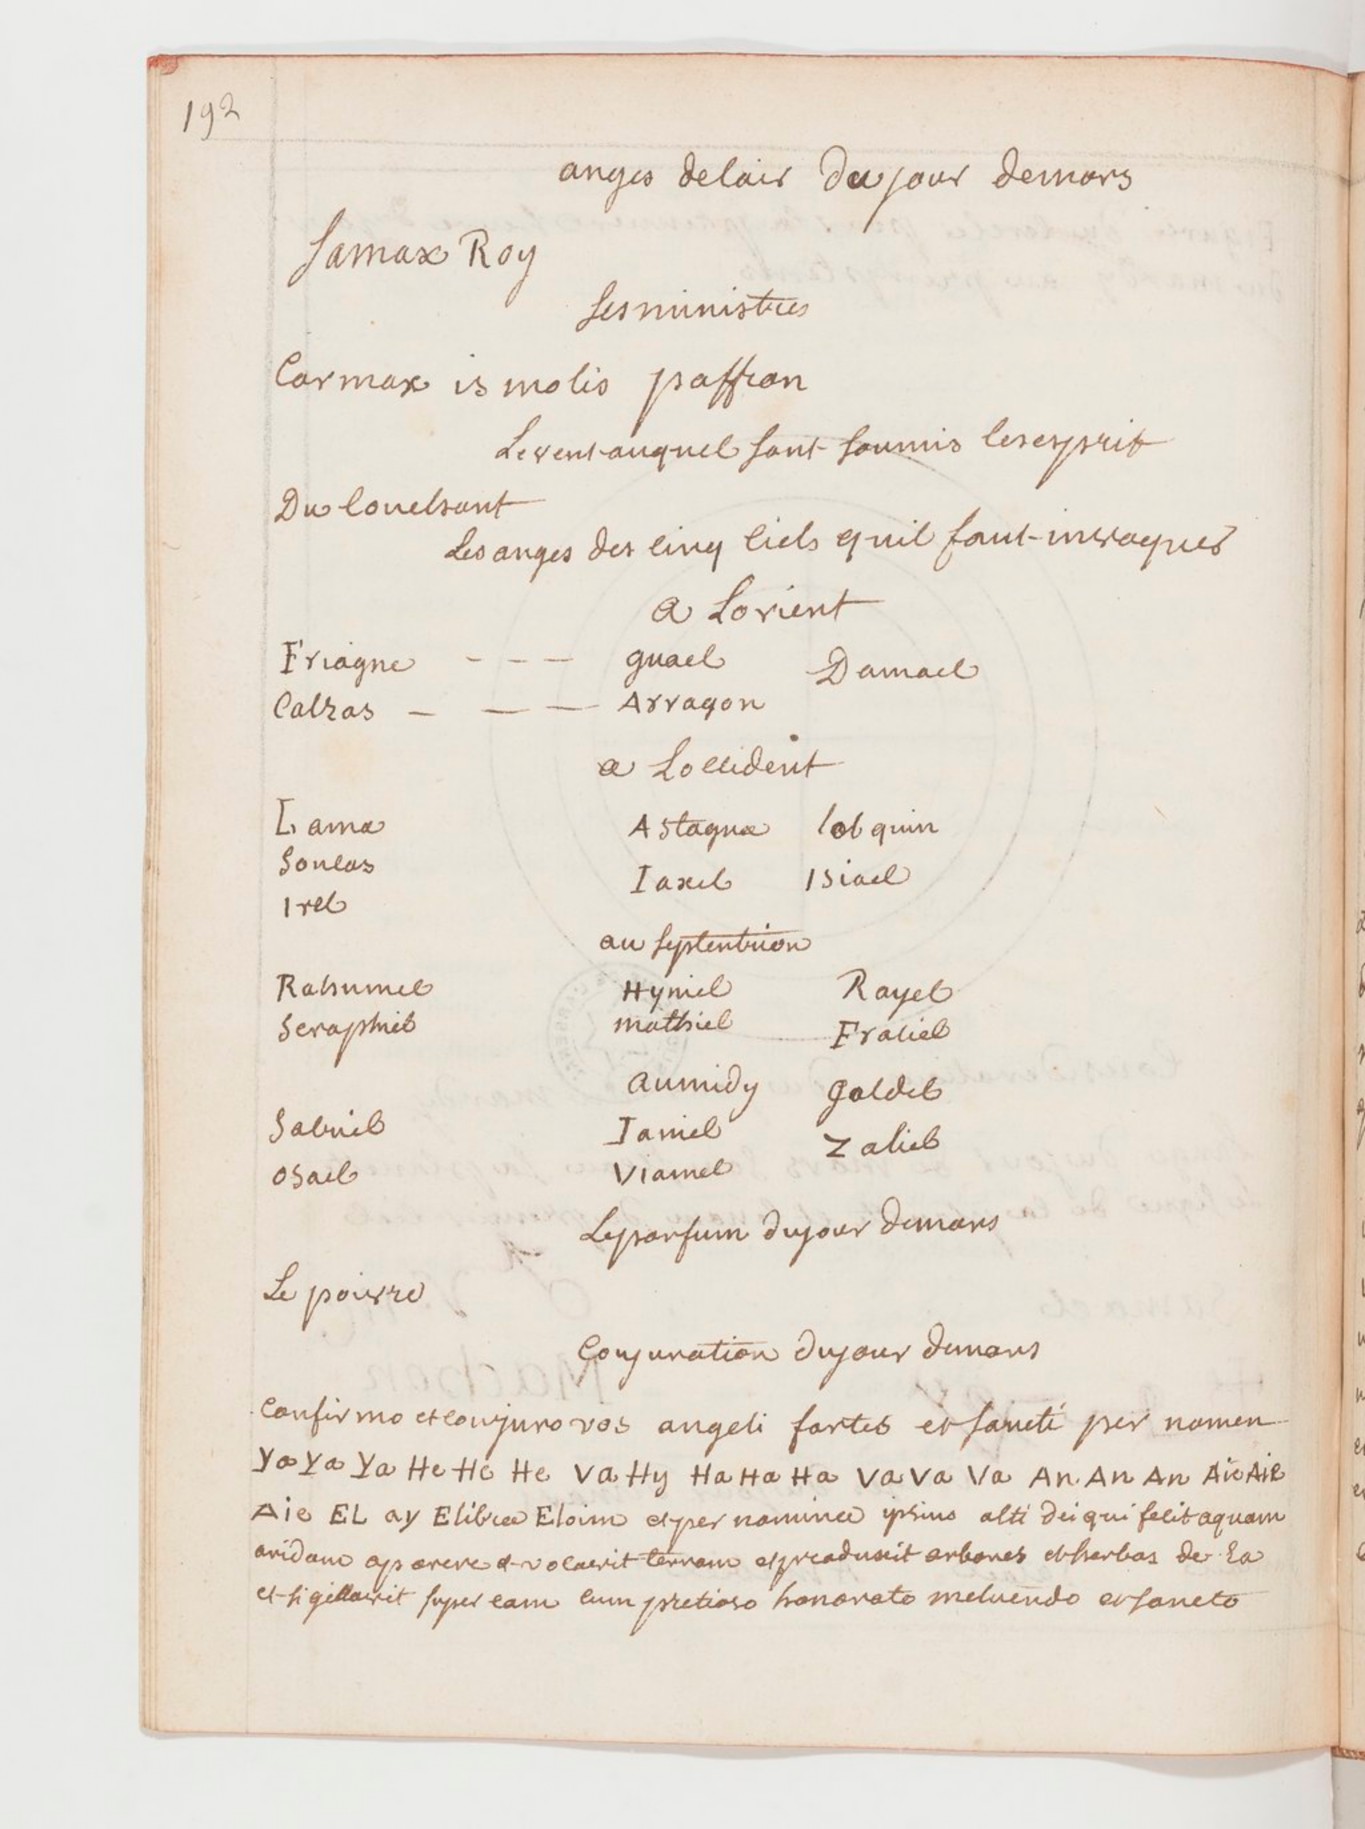 192
anges delair du jour demars
Samax Roy
ses ministres
Carmax is molis paffran
Le vent auquel sont soumis les esprit
Du Couchant
Les anges des cinq Ciels quil faut invoquer
a Lorient
Friagne - - - guael Damael
Calzas - - - Arragon
a Loccident
Lama Astagna lobquin
Soncas Iaxel Isiael
Irel
au septentrion
Rahumel Hyniel Rayel
Seraphiel mathiel Fraciel
aumidy galdel
Sabriel Ianiel Zaliel
osael Viamel
Le parfum du jour demars
Le poivre
Conjuration du jour demars
Confirmo et conjuro vos angeli fortes et sancti per nomen
ya ya ya He He He Va Hy Ha Ha Ha Va Va Va An An An Aie Aie
Aie EL ay Elibra Eloim et per nomina ipsius alti dei qui fecit aquam
aridam aparere et vocavit terram et produxit arbores et herbas de Ea
et sigillavit super eam cum pretioso honorato metuendo et sancto